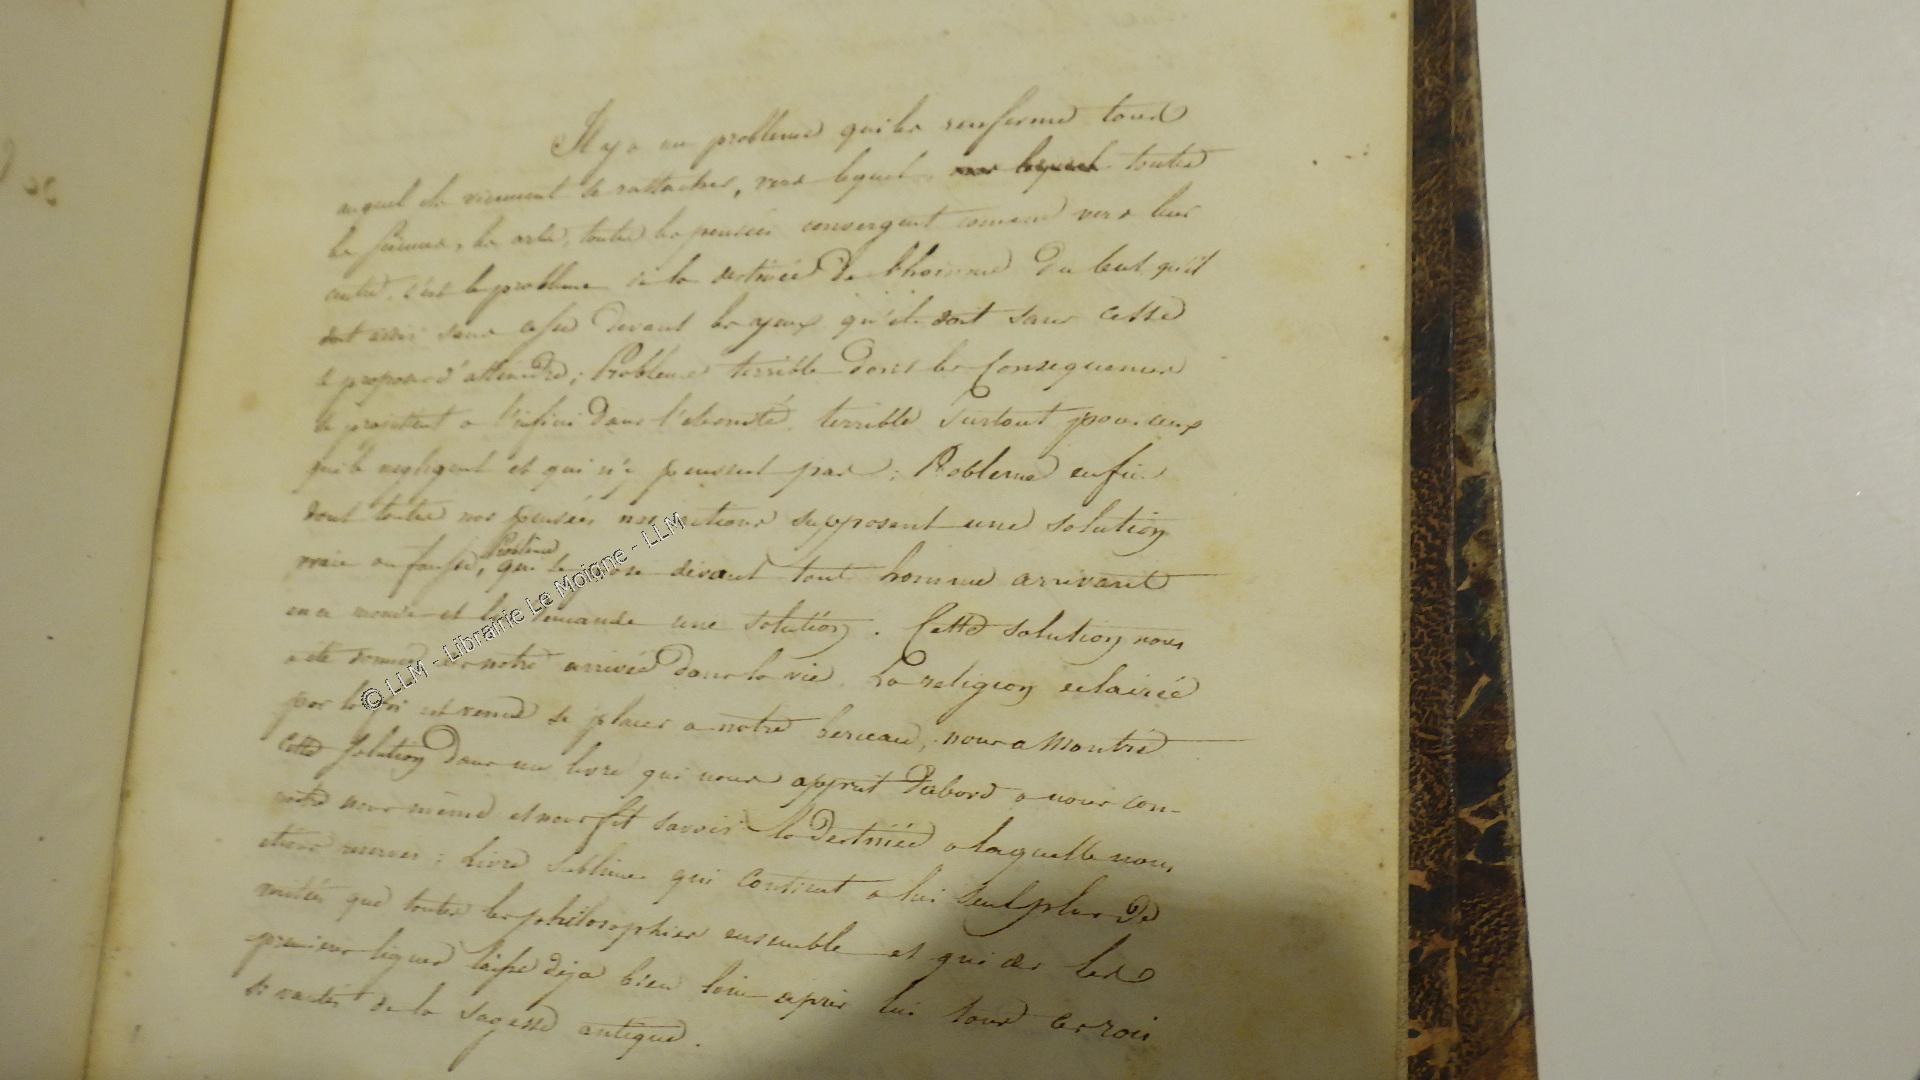 Il y a un problème qui les renferme tous
auquel ils viennent se rattacher, vers lequel, vers lequel toutes
les sciences, les arts, toutes les pensées convergent comme vers leur
centre, c'est le problème de la destinée de l'homme du but qu'il
doit avoir sans cesse devant les yeux qu'il doit sans cesse
se proposer d'atteindre; Problème terrible dont les Consequences
se projettent a l'infini dans l'eternité, terrible surtout pour ceux
qui le negligent et qui n'y pensent pas; Problème enfin
dont toutes nos pensées nos actions supposent une solution
vraie ou fausse, Problème qui se pose devant tout homme arrivant
en ce monde et lui demande une solution. Cette solution nous
a été donnée a notre arrivée dans la vie. La religion eclairée
par la foi est venue se placer a notre berceau, nous a montré
cette solution dans un livre qui nous apprit d'abord a nous con-
naitre nous même et nous fit savoir la destinée a laquelle nous
etions reservés; Livre sublime qui contient a lui seul plus de
verités que toutes les philosophies ensemble et qui des les
premieres lignes laisse deja bien loin apres lui tous
de la sagesse antique.
© LLM - Librairie Le Moigne - LLM